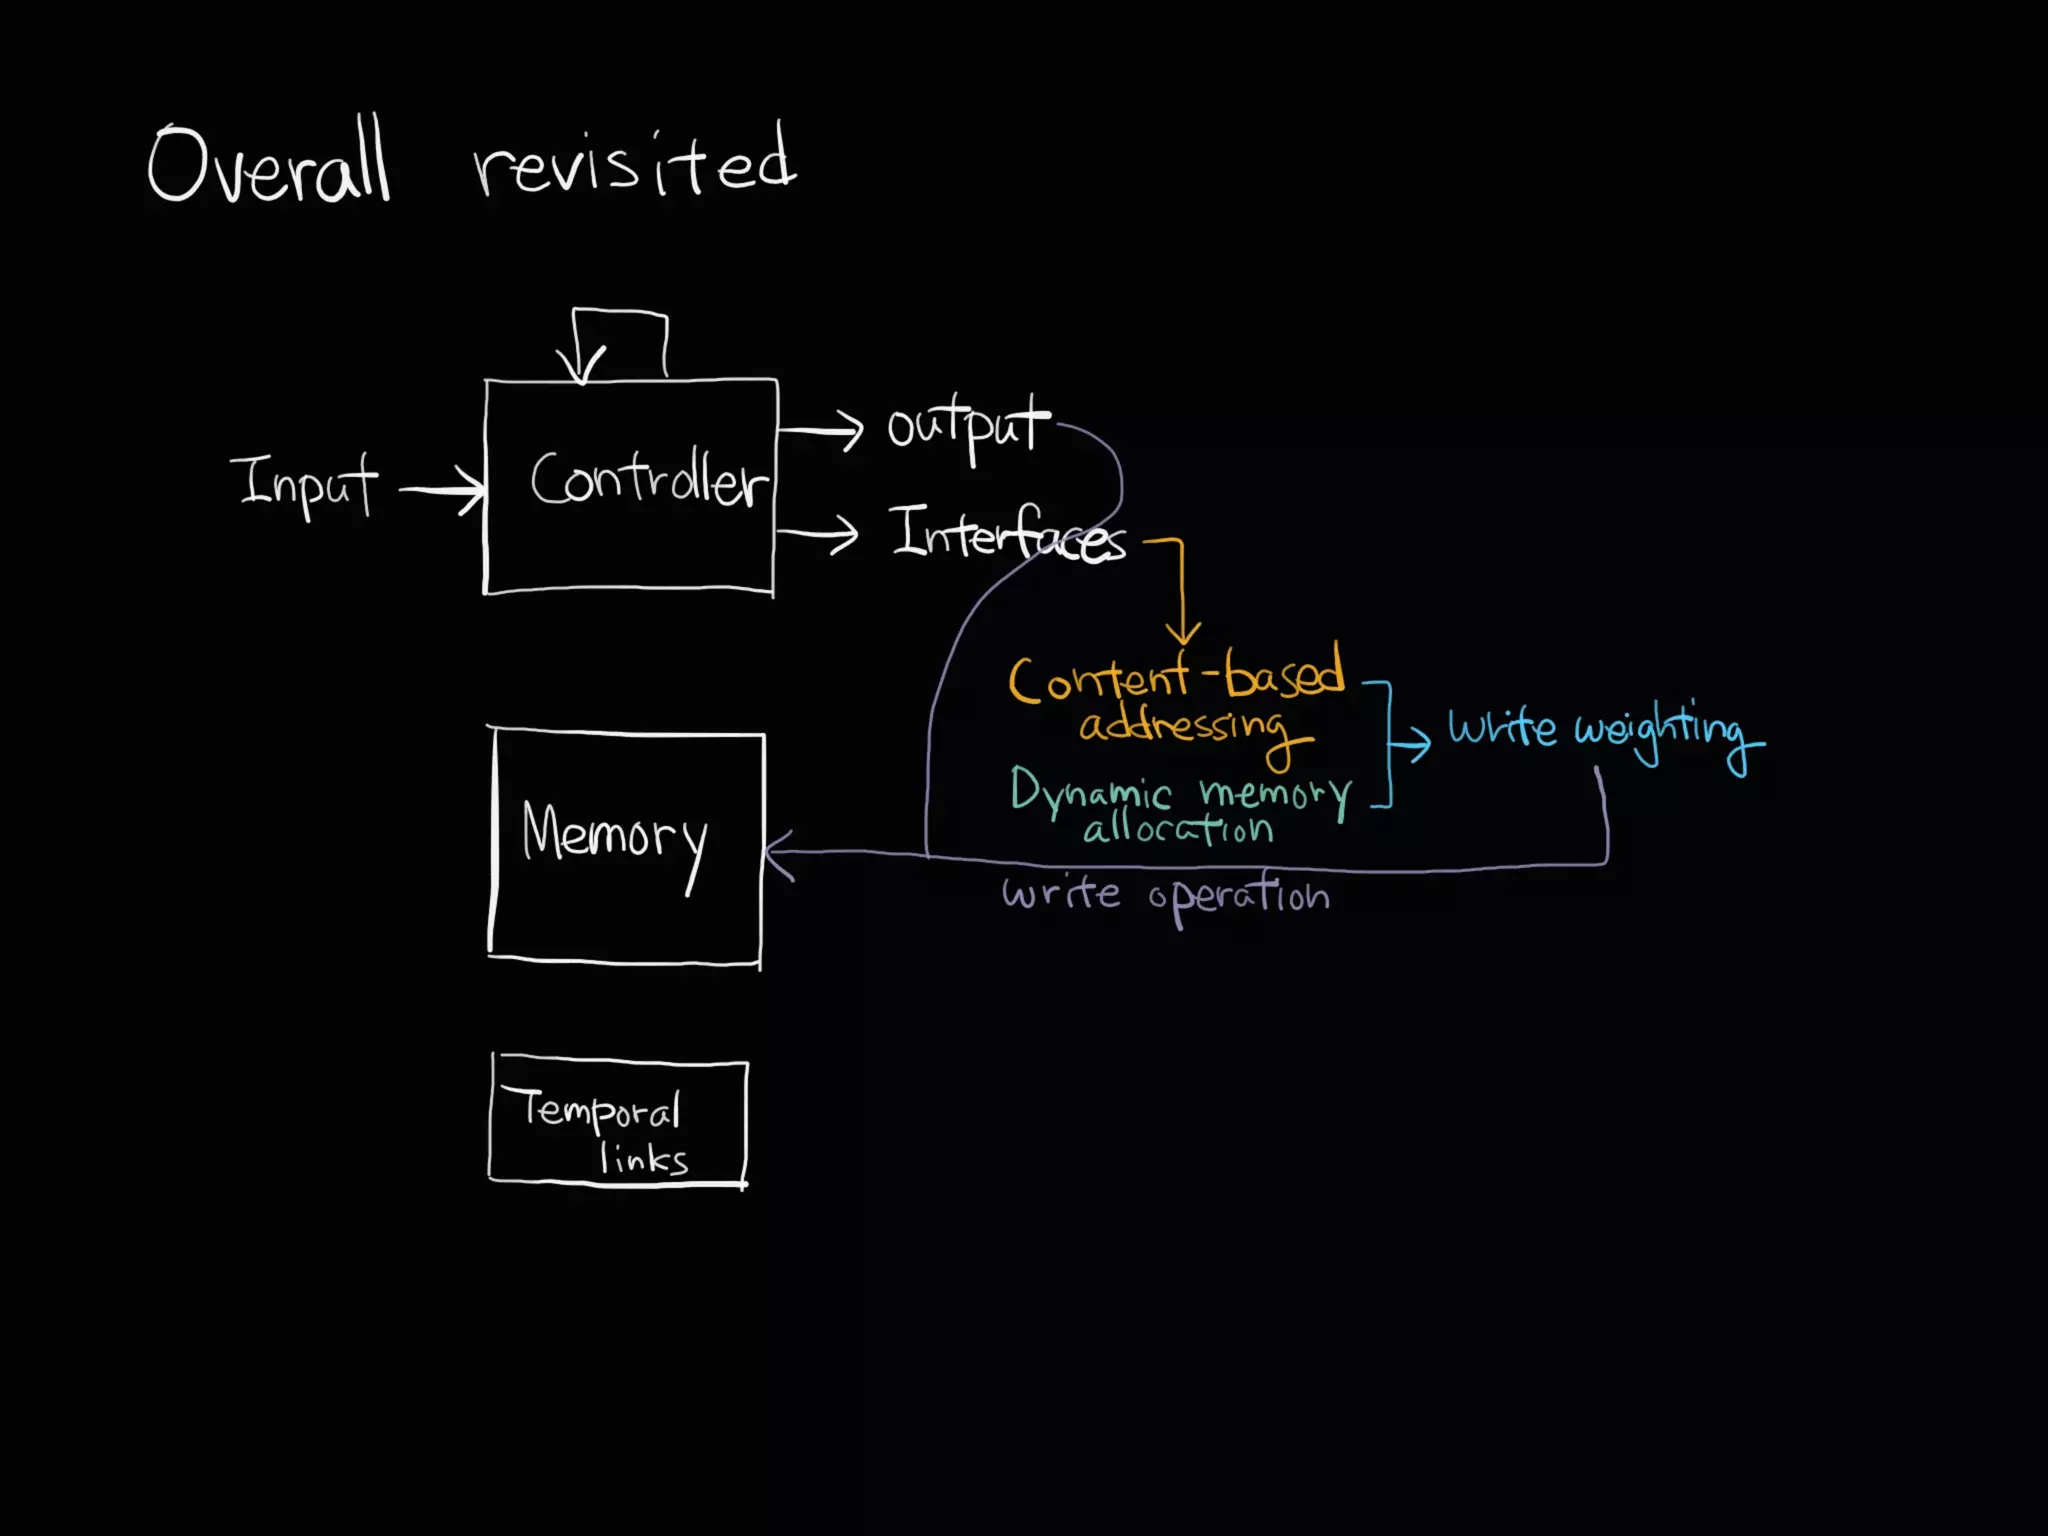 Overall revisited
Input
Controller
output
Interfaces
Content-based
addressing
Dynamic memory
allocation
write weighting
Memory
write operation
Temporal
links